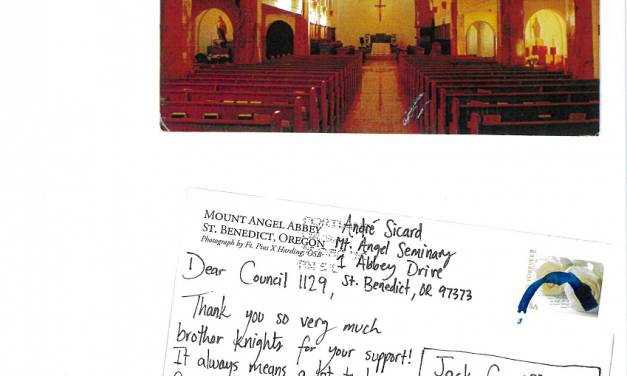 MOUNT ANGEL ABBEY
ST. BENEDICT, OREGON
Photograph by Fr. Pius X Harding, OSB
André Sicard
Mt. Angel Seminary
1 Abbey Drive
St. Benedict, OR 97373
Dear Council 1129,
Thank you so very much
brother knights for your support!
It always means a lot to
Jack